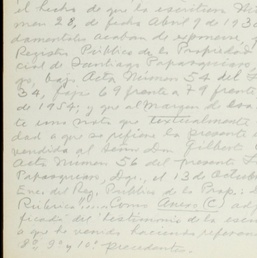 el hecho de que la escritura Nú
men 28, de fecha Abril 9 de 193
damentales acaban de exponerse y
Registro Público de la Propiedad
cial de Santiago Papasquiaro
go, bajo Acta Número 54 del
34, fojas 69 frente a 79 frente
de 1954, y que al margen de
te una nota que textualmente
dad a que se refiere la presente
vendida al señor don Gilberto
Acta Número 56 del presente
Papasquiaro, Dgo., el 13 de Octub
Enc. del Reg. Público de la Prop.:
Rúbrica". Como Anexo (C)
ficada del testimonio de la escri
a que he venido haciendo referenc
8º, 9º y 10º precedentes.